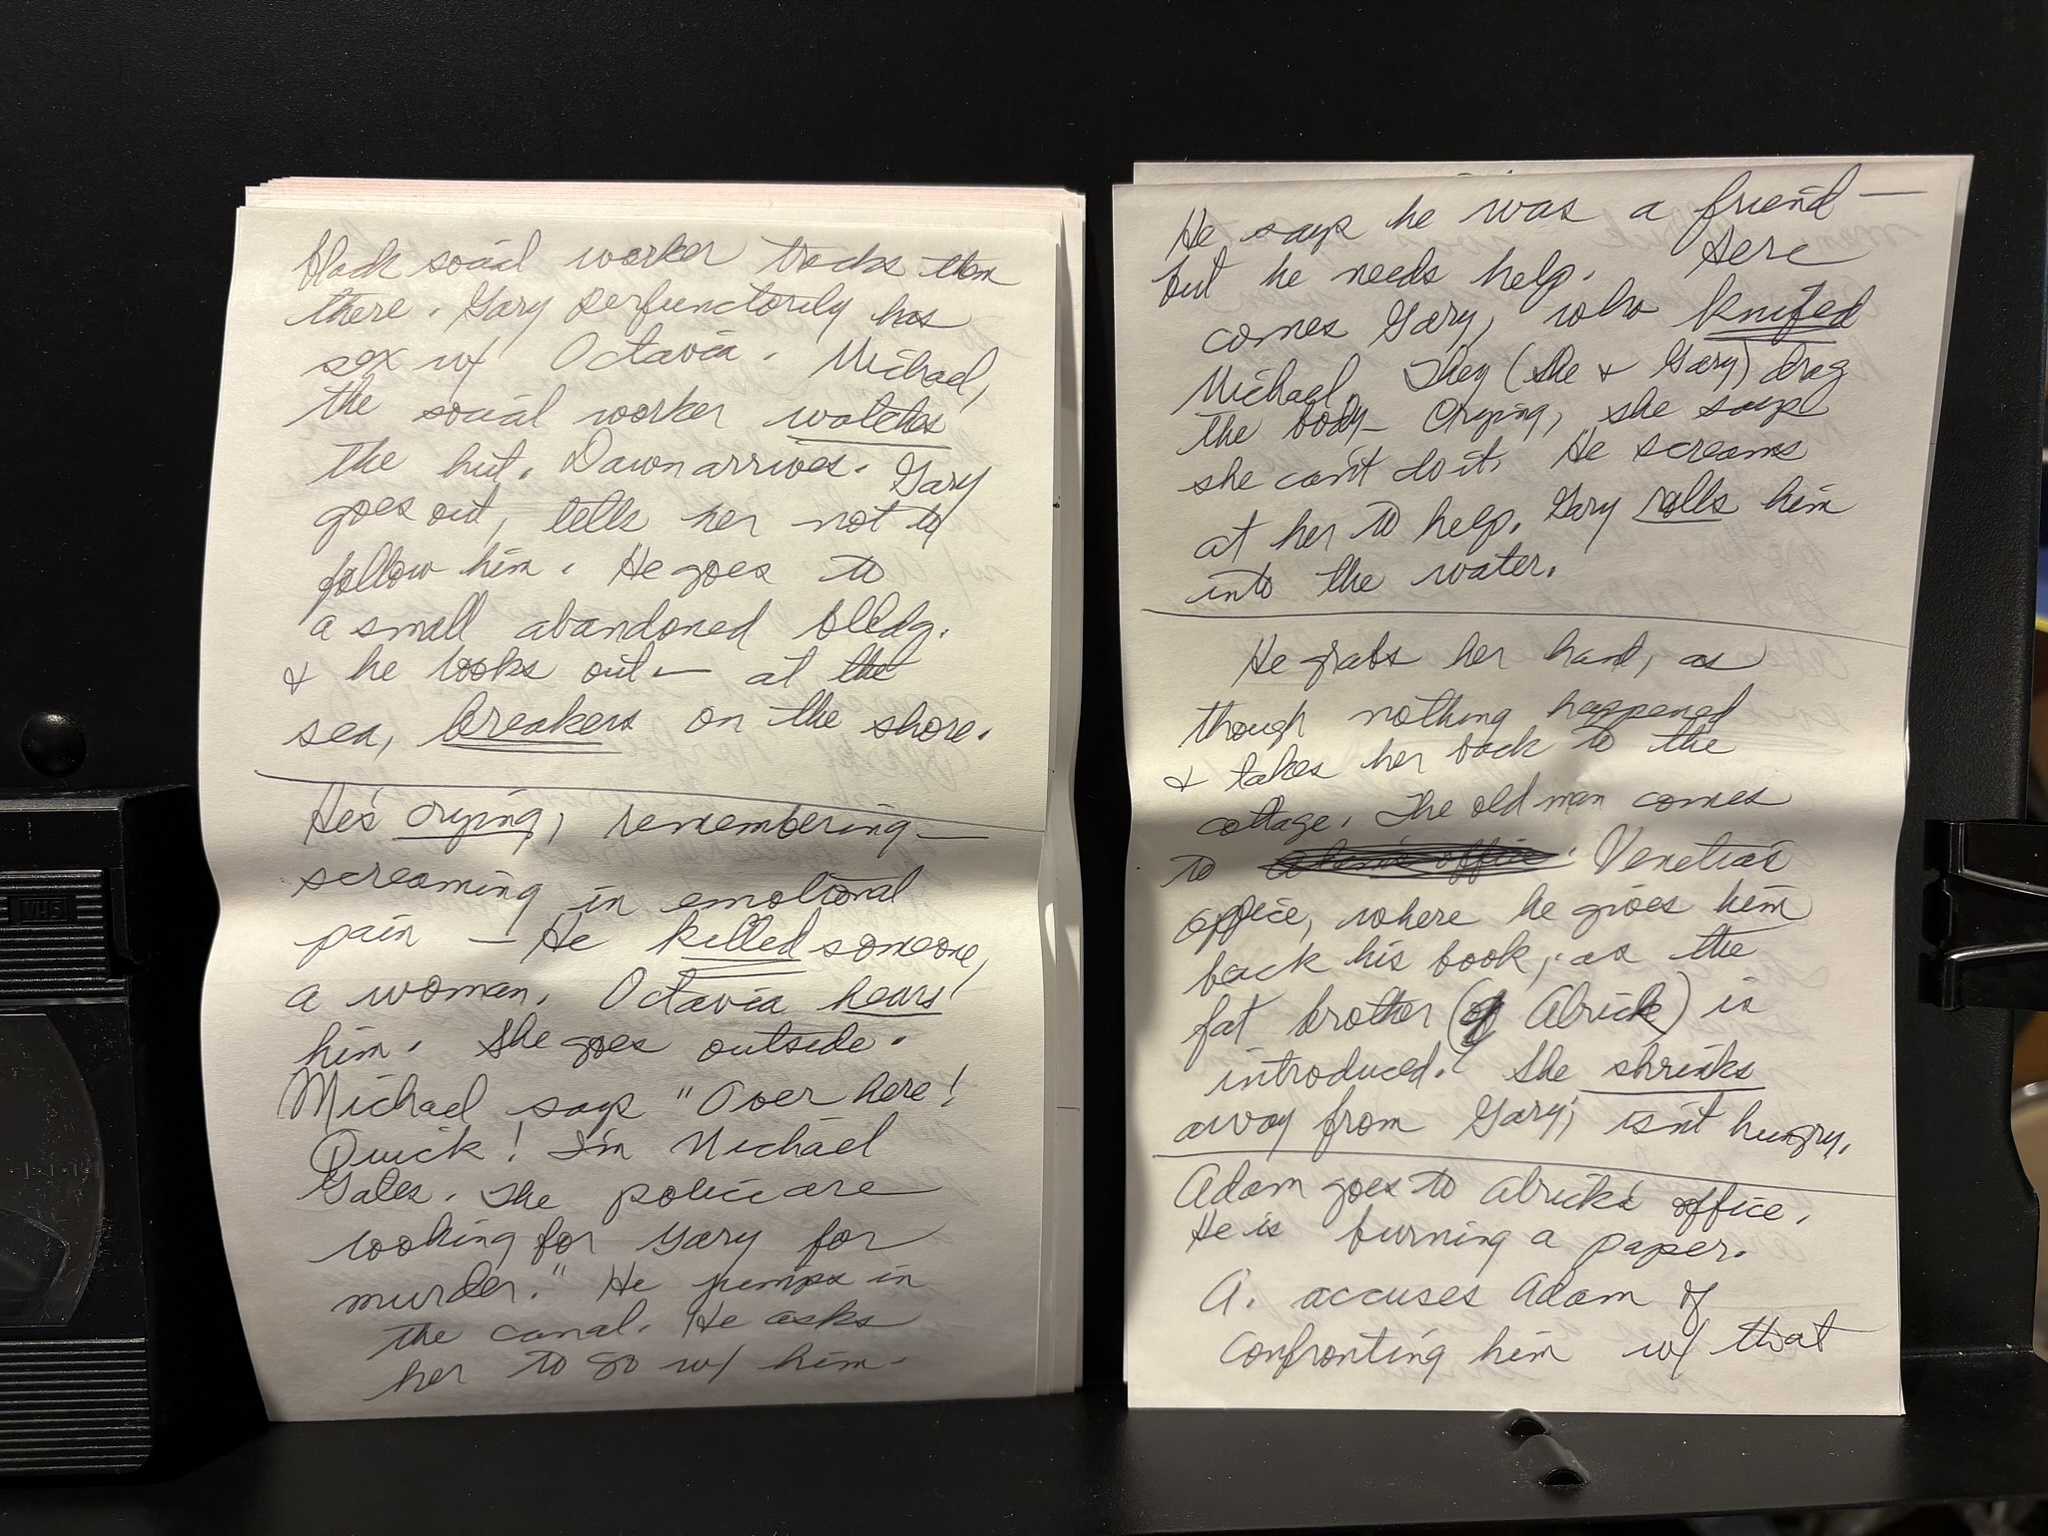 black social worker tracks them
there. Gary perfunctorily has
sex w/ Octavia. Michael,
the social worker watches
the hut. Dawn arrives. Gary
goes out, tells her not to
follow him. He goes to
a small abandoned bldg.
& he looks out — at the
sea, breakers on the shore.
He's crying, remembering —
screaming in emotional
pain — He killed someone,
a woman. Octavia hears
him. She goes outside.
Michael says "Over here!
Quick! I'm Michael
Gales. The police are
looking for Gary for
murder." He jumps in
the canal. He asks
her to go w/ him.
He says he was a friend —
but he needs help. Here
comes Gary, who knifed
Michael. They (she & Gary) drag
the body — Crying, she says
she can't do it. He screams
at her to help. Gary rolls him
into the water.
He grabs her hand, as
though nothing happened
& takes her back to the
cottage. The old man comes
to Venetia's
office, where he gives him
back his book, as the
fat brother (of Alrick) is
introduced. She shrinks
away from Gary; isn't hungry.
Adam goes to Alrick's office.
He is burning a paper.
A. accuses Adam of
confronting him w/ that
VHS